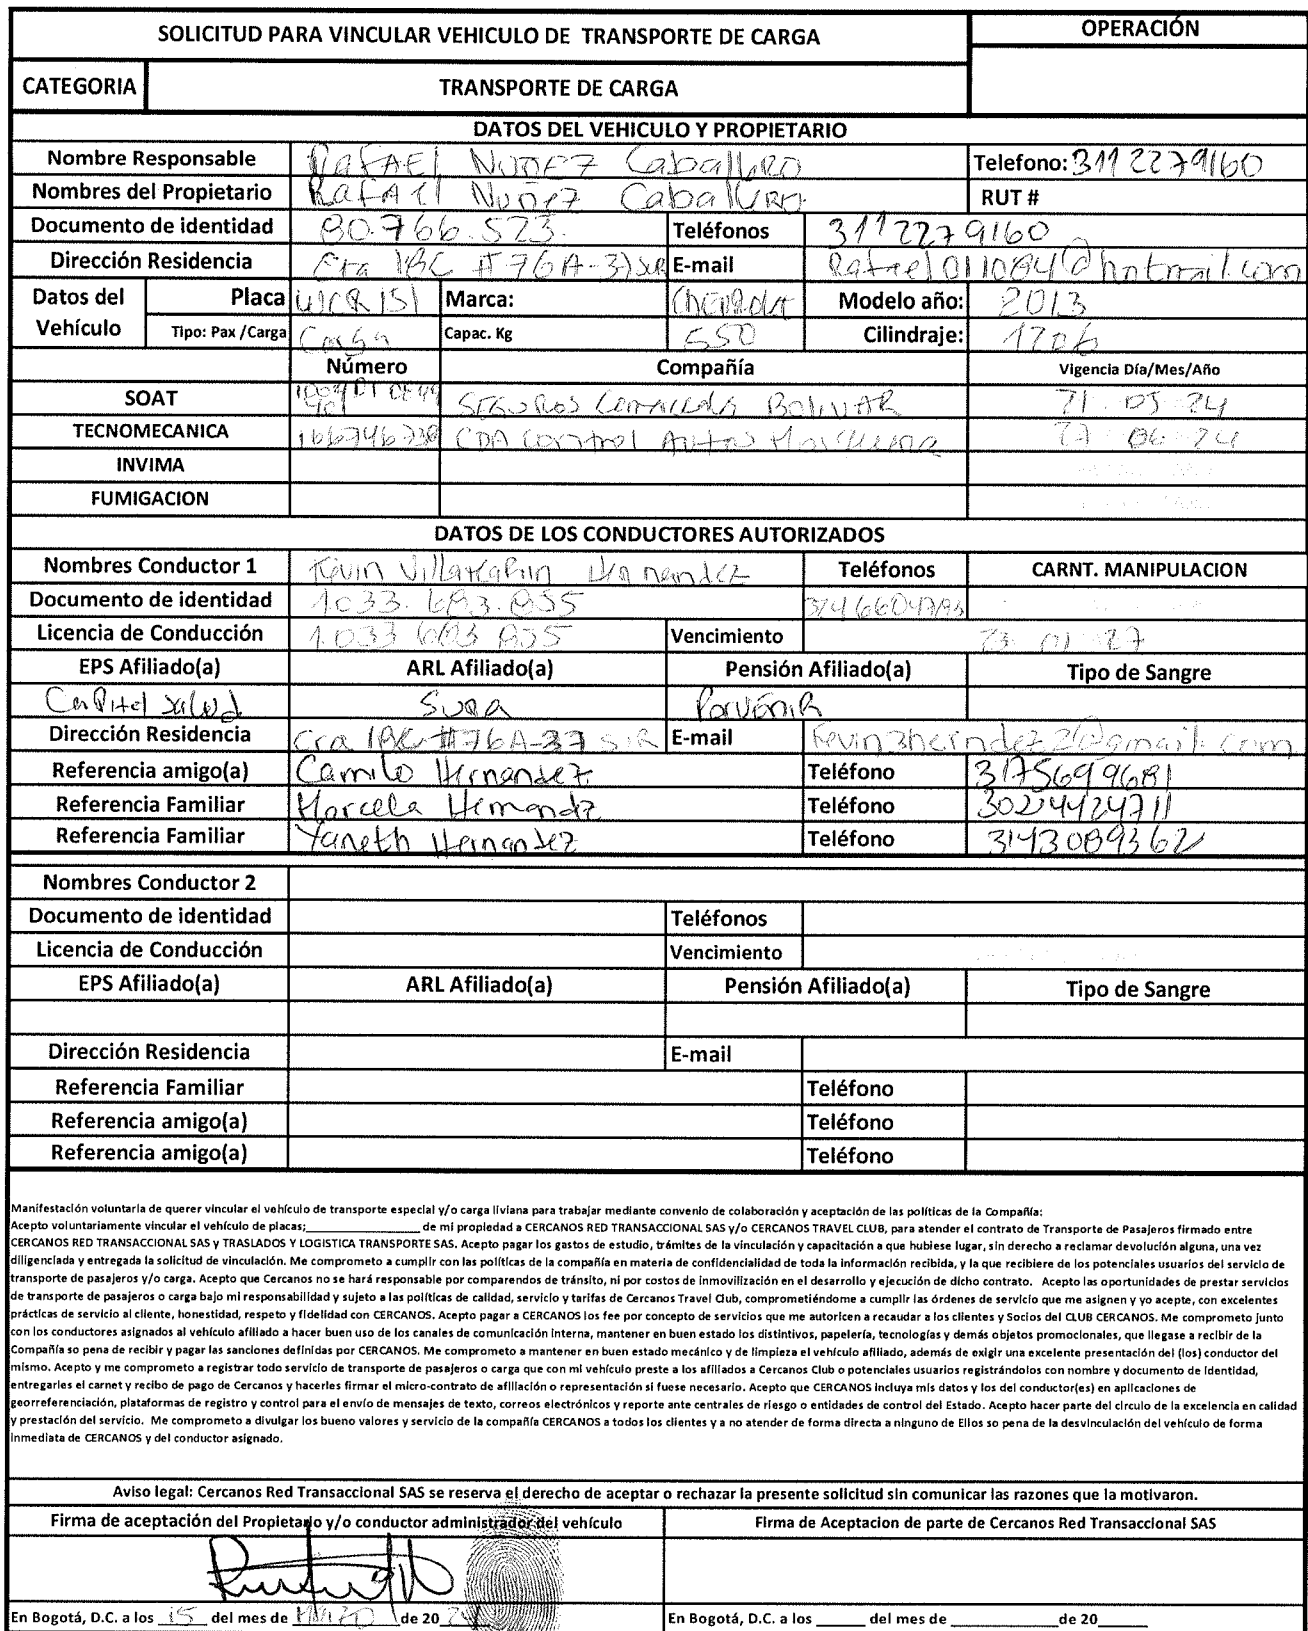 SOLICITUD PARA VINCULAR VEHICULO DE TRANSPORTE DE CARGA
OPERACIÓN
CATEGORIA
TRANSPORTE DE CARGA
DATOS DEL VEHICULO Y PROPIETARIO
Nombre Responsable RaFAEl NUÑEZ Caballero Telefono: 3112279160
Nombres del Propietario RaFAEl NUÑEZ Caballero RUT #
Documento de identidad 80.766.523. Teléfonos 3112279160
Dirección Residencia Cra 18C #76A-37 SUR E-mail Rafael011084@hotmail.com
Datos del Vehículo Placa WCR151 Marca: Chevrolet Modelo año: 2013
Tipo: Pax /Carga Carga Capac. Kg 550 Cilindraje: 1206
Número Compañía Vigencia Día/Mes/Año
SOAT SEGUROS Comerciales BOLIVAR 21 05 24
TECNOMECANICA 166746738 CDA Control Autos 27 06 24
INVIMA
FUMIGACION
DATOS DE LOS CONDUCTORES AUTORIZADOS
Nombres Conductor 1 Kevin Villamarin Hernandez Teléfonos CARNT. MANIPULACION
Documento de identidad 1.033.683.855
Licencia de Conducción 1.033 683 855 Vencimiento 23 01 27
EPS Afiliado(a) ARL Afiliado(a) Pensión Afiliado(a) Tipo de Sangre
Capital salud Sura Porvenir
Dirección Residencia Cra 18C #76A-37 SUR E-mail Kevin3herndez2@gmail.com
Referencia amigo(a) Camilo Hernandez Teléfono 3175699681
Referencia Familiar Marcela Hernandz Teléfono 30224424711
Referencia Familiar Yaneth Hernandez Teléfono 3143089362
Nombres Conductor 2
Documento de identidad Teléfonos
Licencia de Conducción Vencimiento
EPS Afiliado(a) ARL Afiliado(a) Pensión Afiliado(a) Tipo de Sangre
Dirección Residencia E-mail
Referencia Familiar Teléfono
Referencia amigo(a) Teléfono
Referencia amigo(a) Teléfono
Manifestación voluntaria de querer vincular el vehículo de transporte especial y/o carga liviana para trabajar mediante convenio de colaboración y aceptación de las políticas de la Compañía:
Acepto voluntariamente vincular el vehículo de placas;____________________ de mi propiedad a CERCANOS RED TRANSACCIONAL SAS y/o CERCANOS TRAVEL CLUB, para atender el contrato de Transporte de Pasajeros firmado entre
CERCANOS RED TRANSACCIONAL SAS y TRASLADOS Y LOGISTICA TRANSPORTE SAS. Acepto pagar los gastos de estudio, trámites de la vinculación y capacitación a que hubiese lugar, sin derecho a reclamar devolución alguna, una vez
diligenciada y entregada la solicitud de vinculación. Me comprometo a cumplir con las políticas de la compañía en materia de confidencialidad de toda la información recibida, y la que recibiere de los potenciales usuarios del servicio de
transporte de pasajeros y/o carga. Acepto que Cercanos no se hará responsable por comparendos de tránsito, ni por costos de inmovilización en el desarrollo y ejecución de dicho contrato. Acepto las oportunidades de prestar servicios
de transporte de pasajeros o carga bajo mi responsabilidad y sujeto a las políticas de calidad, servicio y tarifas de Cercanos Travel Club, comprometiéndome a cumplir las órdenes de servicio que me asignen y yo acepte, con excelentes
prácticas de servicio al cliente, honestidad, respeto y fidelidad con CERCANOS. Acepto pagar a CERCANOS los fee por concepto de servicios que me autoricen a recaudar a los clientes y Socios del CLUB CERCANOS. Me comprometo junto
con los conductores asignados al vehículo afiliado a hacer buen uso de los canales de comunicación interna, mantener en buen estado los distintivos, papelería, tecnologías y demás objetos promocionales, que llegase a recibir de la
Compañía so pena de recibir y pagar las sanciones definidas por CERCANOS. Me comprometo a mantener en buen estado mecánico y de limpieza el vehículo afiliado, además de exigir una excelente presentación del (los) conductor del
mismo. Acepto y me comprometo a registrar todo servicio de transporte de pasajeros o carga que con mi vehículo preste a los afiliados a Cercanos Club o potenciales usuarios registrándolos con nombre y documento de identidad,
entregarles el carnet y recibo de pago de Cercanos y hacerles firmar el micro-contrato de afiliación o representación si fuese necesario. Acepto que CERCANOS incluya mis datos y los del conductor(es) en aplicaciones de
georreferenciación, plataformas de registro y control para el envío de mensajes de texto, correos electrónicos y reporte ante centrales de riesgo o entidades de control del Estado. Acepto hacer parte del círculo de la excelencia en calidad
y prestación del servicio. Me comprometo a divulgar los bueno valores y servicio de la compañía CERCANOS a todos los clientes y a no atender de forma directa a ninguno de Ellos so pena de la desvinculación del vehículo de forma
inmediata de CERCANOS y del conductor asignado.
Aviso legal: Cercanos Red Transaccional SAS se reserva el derecho de aceptar o rechazar la presente solicitud sin comunicar las razones que la motivaron.
Firma de aceptación del Propietario y/o conductor administrador del vehículo Firma de Aceptacion de parte de Cercanos Red Transaccional SAS
En Bogotá, D.C. a los 15 del mes de Marzo de 20 24 En Bogotá, D.C. a los ______ del mes de ______________ de 20